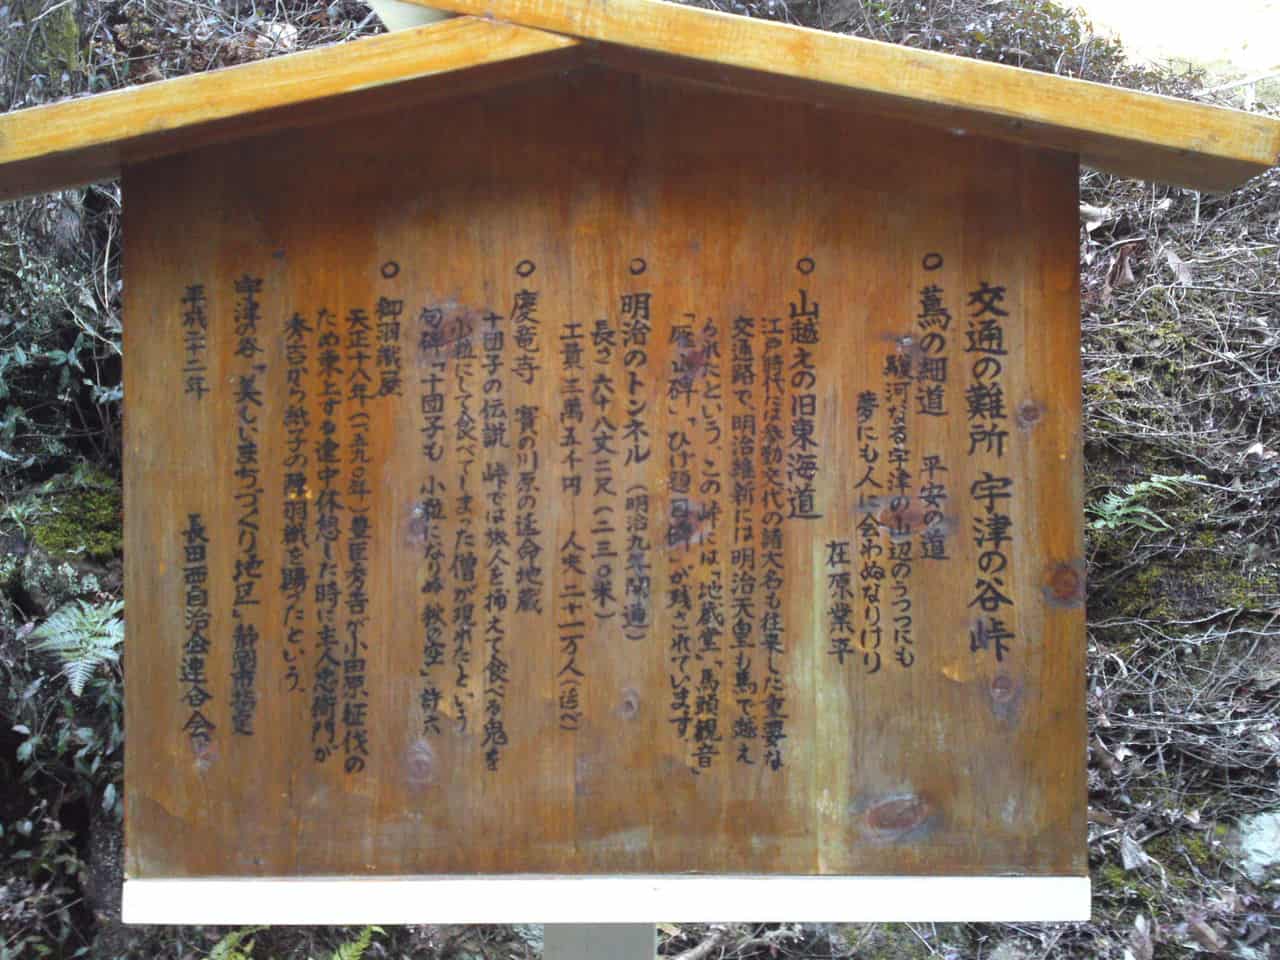 交通の難所 宇津の谷峠
○ 蔦の細道 平安の道
駿河なる宇津の山辺のうつつにも
夢にも人に会わぬなりけり
在原業平
○ 山越えの旧東海道
江戸時代は参勤交代の諸大名も往来した重要な
交通路で、明治維新には明治天皇も馬で越え
られたという、この峠には「地蔵堂」「馬頭観音」
「雁山碑」「ひげ題目碑」が残されています。
○ 明治のトンネル (明治九年開通)
長さ 六十八丈二尺(二三〇米)
工費 三萬五千円 人夫 二十一万人(延べ)
○ 慶竜寺 賽の川原の延命地蔵
十団子の伝説 峠では旅人を捕えて食べる鬼を
小粒にして食べてしまった僧が現れたという
句碑「十団子も 小粒になりぬ 秋の空」許六
○ 御羽織屋
天正十八年(一五九〇年)豊臣秀吉が小田原征伐の
ため東上する途中休憩した時に主人忠衛門が
秀吉から紙子の陣羽織を賜ったという。
宇津の谷「美しいまちづくり地区」静岡市指定
平成二十二年 長田西自治会連合会